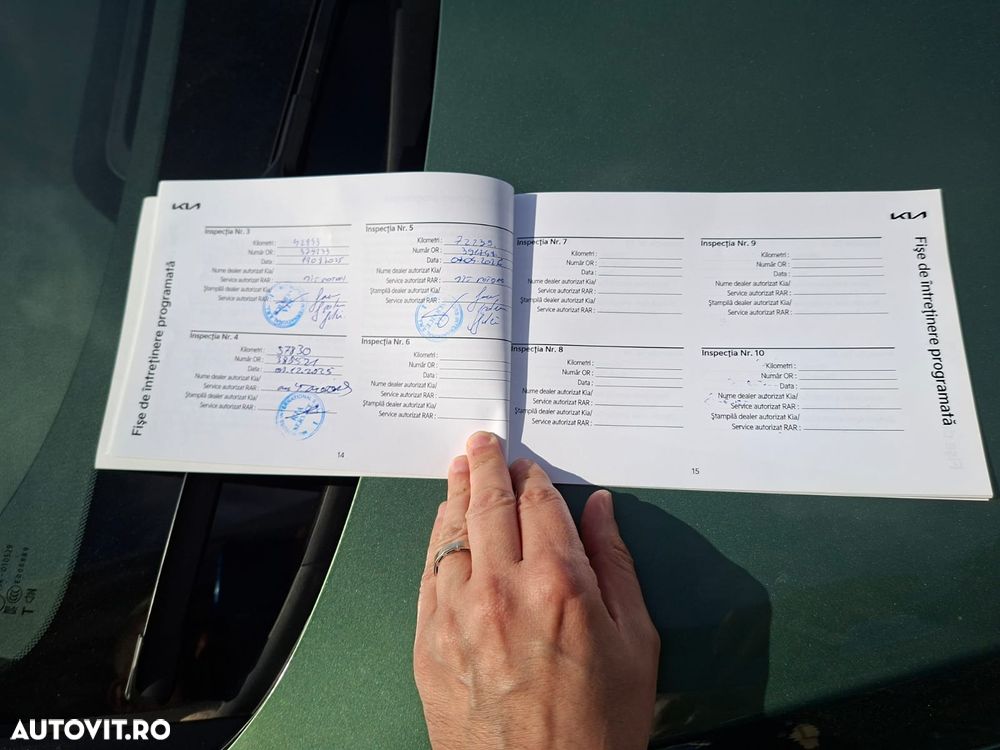 KIA
Fișe de întreținere programată
Inspecția Nr. 3
Kilometri :
Număr OR :
Data :
Nume dealer autorizat Kia/
Service autorizat RAR :
Ștampilă dealer autorizat Kia/
Service autorizat RAR :
Inspecția Nr. 4
Kilometri : 57830
Număr OR : 385521
Data : 03.12.2025
Nume dealer autorizat Kia/
Service autorizat RAR :
Ștampilă dealer autorizat Kia/
Service autorizat RAR :
Inspecția Nr. 5
Kilometri : 72239
Număr OR :
Data :
Nume dealer autorizat Kia/
Service autorizat RAR :
Ștampilă dealer autorizat Kia/
Service autorizat RAR :
Inspecția Nr. 6
Kilometri :
Număr OR :
Data :
Nume dealer autorizat Kia/
Service autorizat RAR :
Ștampilă dealer autorizat Kia/
Service autorizat RAR :
14
KIA
Fișe de întreținere programată
Inspecția Nr. 7
Kilometri :
Număr OR :
Data :
Nume dealer autorizat Kia/
Service autorizat RAR :
Ștampilă dealer autorizat Kia/
Service autorizat RAR :
Inspecția Nr. 8
Kilometri :
Număr OR :
Data :
Nume dealer autorizat Kia/
Service autorizat RAR :
Ștampilă dealer autorizat Kia/
Service autorizat RAR :
Inspecția Nr. 9
Kilometri :
Număr OR :
Data :
Nume dealer autorizat Kia/
Service autorizat RAR :
Ștampilă dealer autorizat Kia/
Service autorizat RAR :
Inspecția Nr. 10
Kilometri :
Număr OR :
Data :
Nume dealer autorizat Kia/
Service autorizat RAR :
Ștampilă dealer autorizat Kia/
Service autorizat RAR :
15
AUTOVIT.RO